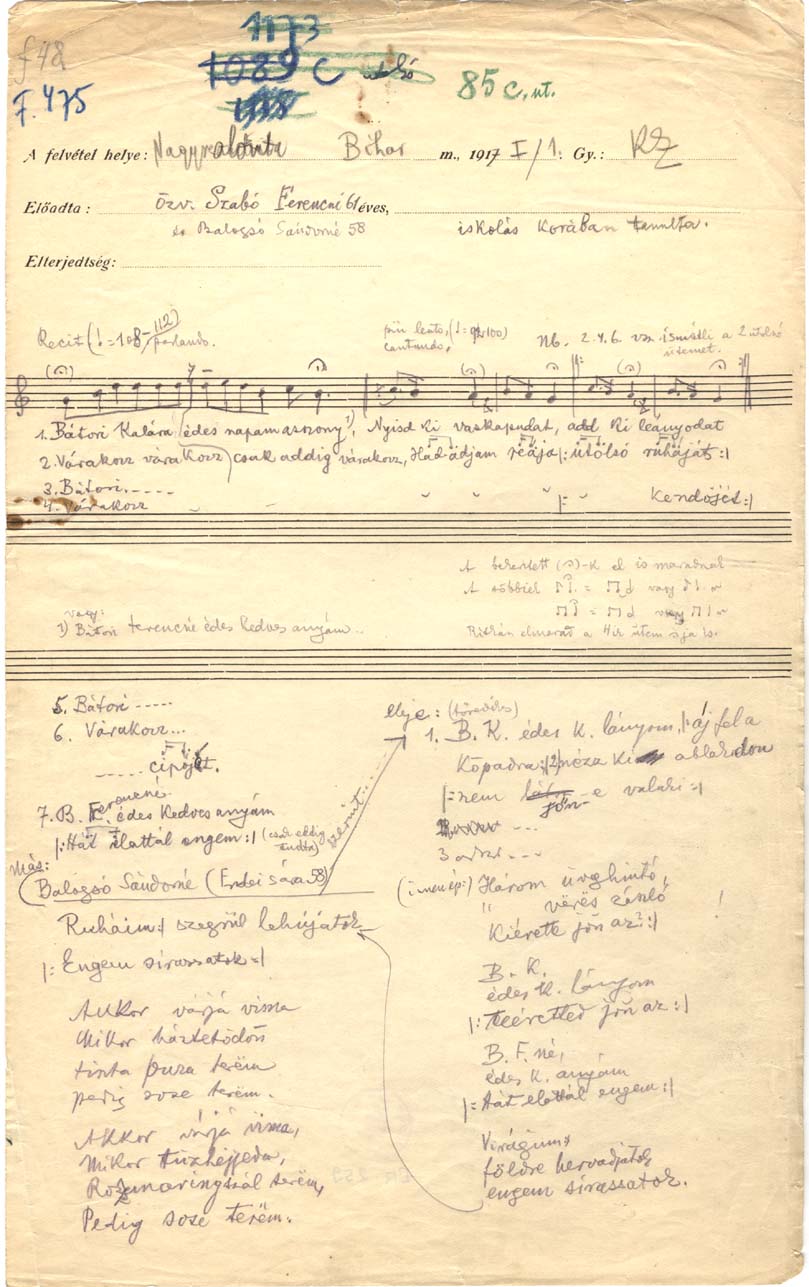 f 48
F. 475
1173
1089 C utolsó
85 c, ut.
A felvétel helye: Bihar m., 1917 I/1. Gy.: KZ
Előadta: özv. Szabó Ferencné 61 éves,
és Balogsó Sándorné 58 iskolás korában tanulta.
Elterjedtség:
Recit (♩=108-112) parlando.
più lento, cantando.
Nb. 2. 4. 6. vsz. ismétli a 2 utolsó ütemet.
1. Bátori Kalára édes napamasszony 1), Nyisd ki vaskapudat, add ki leányodat
2. Várakozz várakozz csak addig várakozz, Had ádjam reája |: utolsó ruháját :|
3. Bátori.----
4. Várakozz |: kendőjét :|
A bekerített (𝄐)-k el is maradnak
A többiek
vagy
vagy:
1) Bátori Ferencné édes kedves anyám..
Ritkán elmarad a 4ik ütem is.
5. Bátori -----
6. Várakozz...
..... cipőjét.
7. B. Ferencné édes kedves anyám
|: Hát elattál engem :| (csak eddig tudta)
Más:
(Balogsó Sándorné (Erdei Sára 58)
szerint...
Ruháim :| szegrül lehújatok
|: Engem sirassatok :|
Akkor várjá vissa
Mikor háztetődön
tiszta buza terëm
pedig sose terëm.
Akkor várjá vissa,
Mikor tüzhejjeden,
Rozmaringszál terëm,
Pedig sose terëm.
eleje: (töredékes)
1. B. K. édes k. lányom, |: áj fel a
kőpadra :| 2) nézz ki ablakodon
|: nem jön-e valaki :|
3
Három üveghintó,
" vërës zászló
Kiérette jön az? :|
B. K.
édes k. lányom
|: teéretted jön az :|
B. F. né,
édes k. anyám
|: Hát elattál engem :|
Virágim,
földre hervadjatok
engem sirassatok.